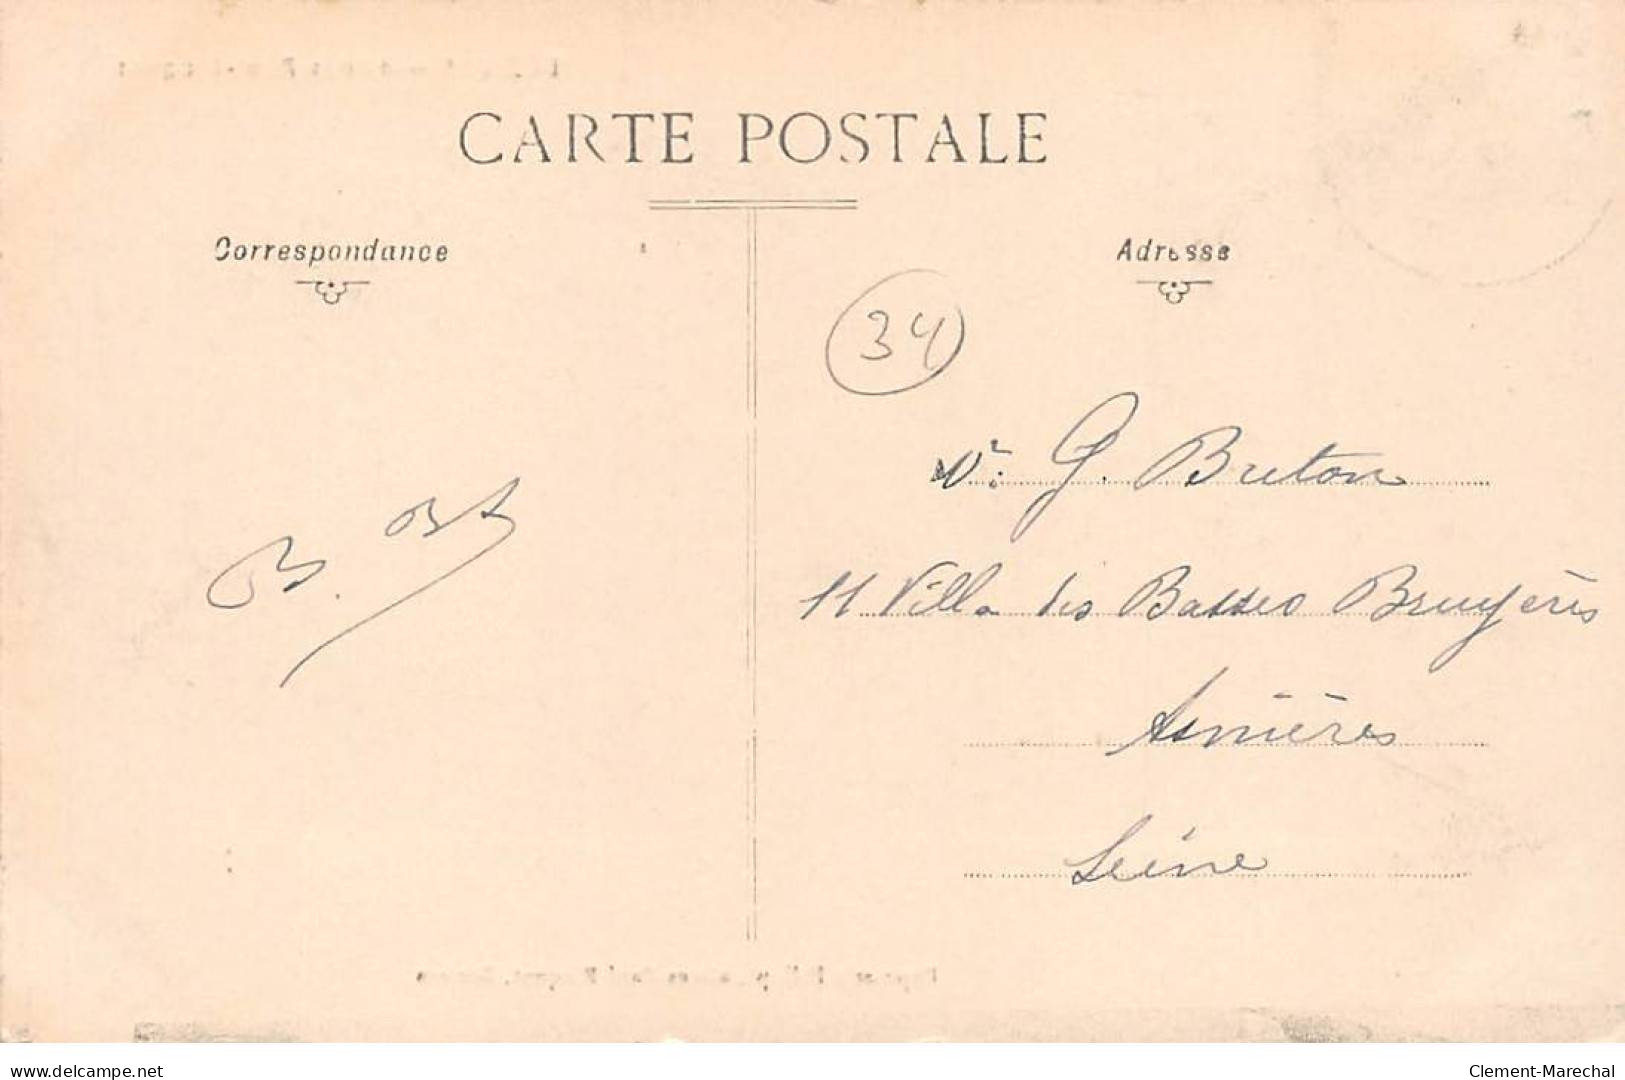 CARTE POSTALE
Correspondance
Adresse
34
G. Breton
11 Villa des Basses Bruyères
Asnières
Seine
www.delcampe.net
Clement-Marechal